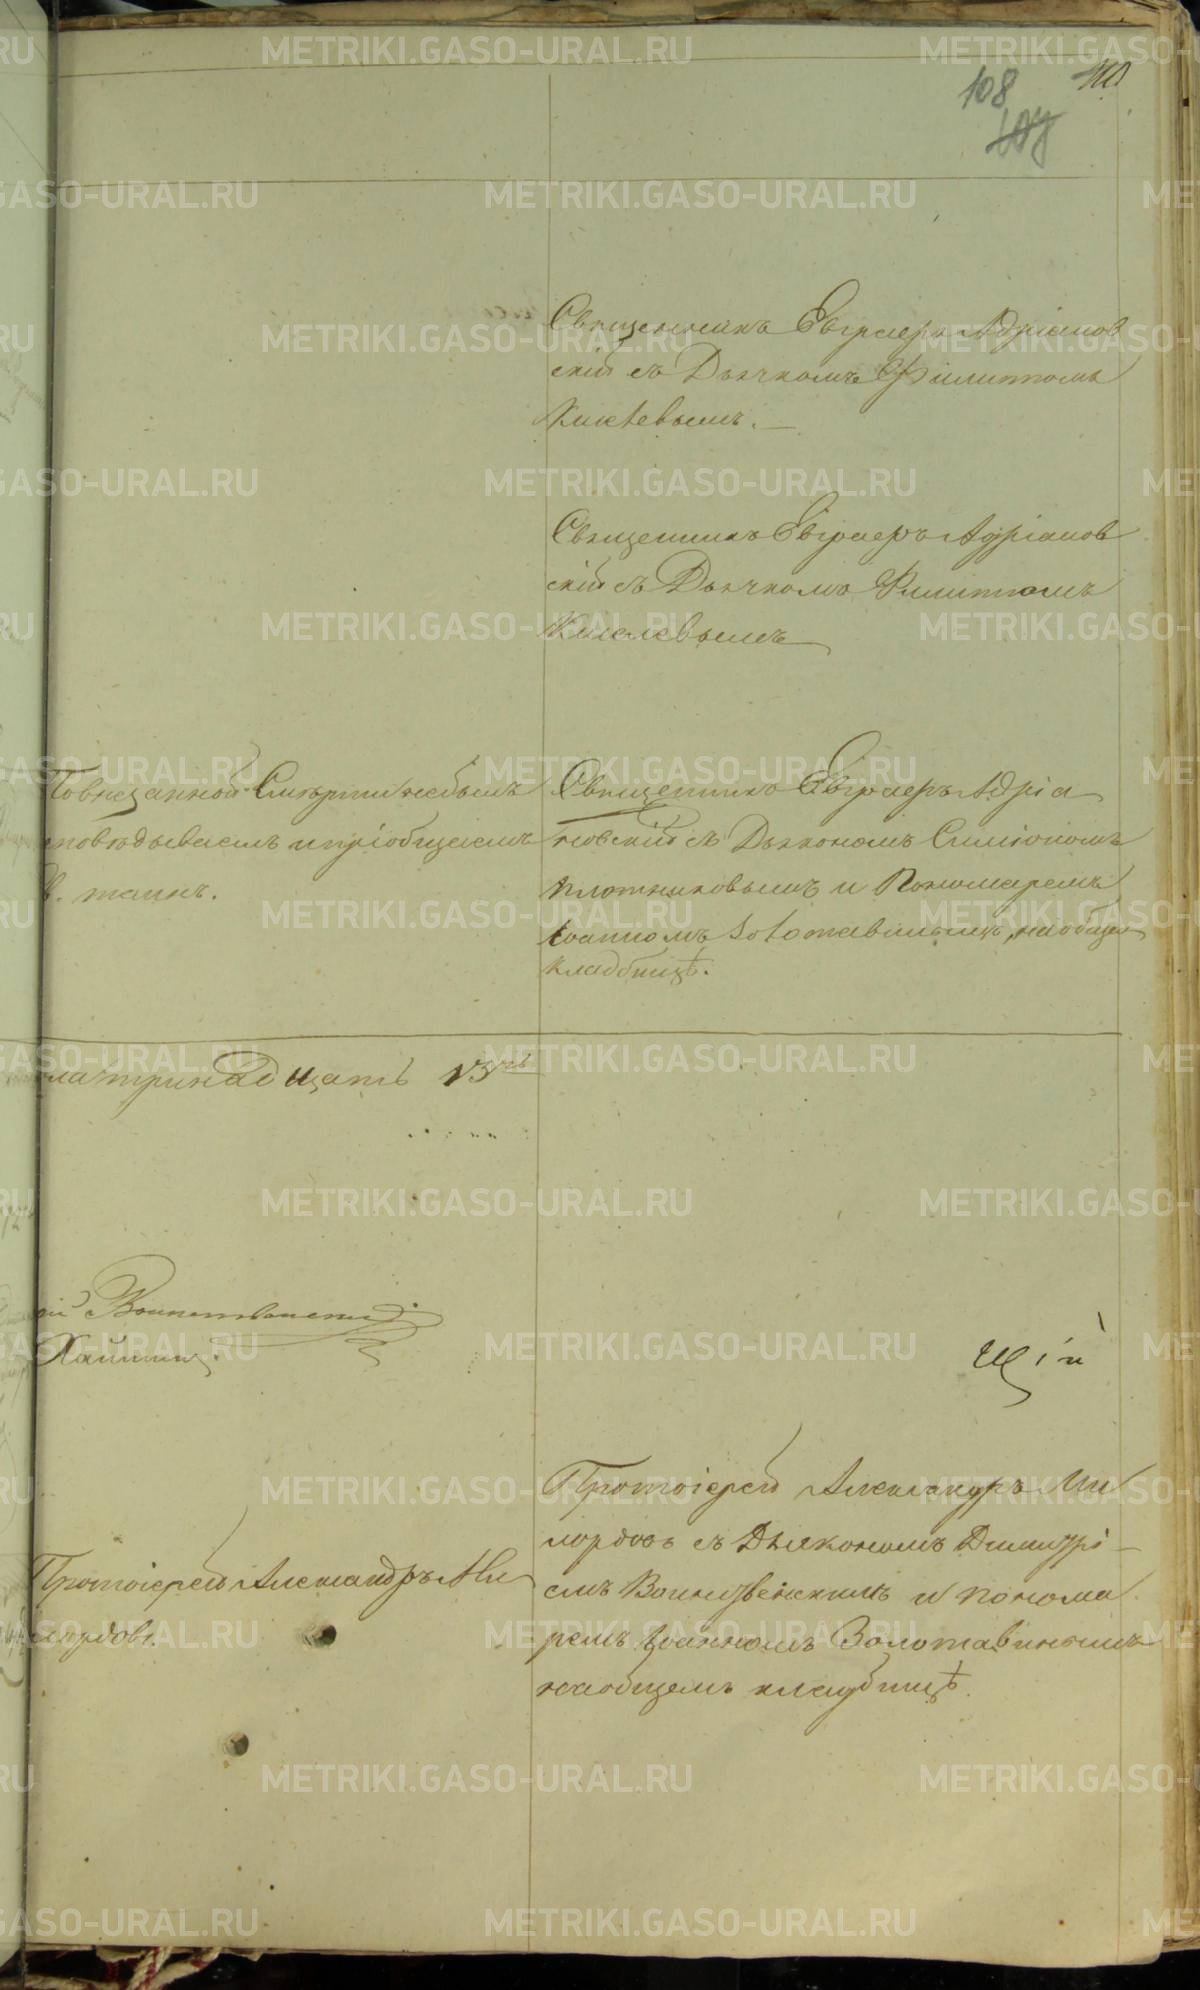 108
110
107
Священникъ Евграфъ Адріанов
скій съ Дьячкомъ Филиппомъ
Священникъ Евграфъ Адріанов
скій съ Дьячкомъ Филиппомъ
Киселевымъ
Повнезапной Смерти небылъ
исповѣдываемъ и пріобщаемъ
св. таинъ.
Священникъ Евграфъ Адріа
новскій съ Дьякономъ Симіономъ
Плотниковымъ и Пономаремъ
Іоанномъ Золотавинымъ, на общем
кладбищѣ.
тринадцать 13ть
Протоіерей Александръ Ми
лордовъ.
щій
Протоіерей Александръ Ми
лордовъ съ Дьякономъ Димитрі-
емъ Воинственскимъ и понома
ремъ Іоанномъ Золотавинымъ
наобщемъ кладбищѣ.
METRIKI.GASO-URAL.RU